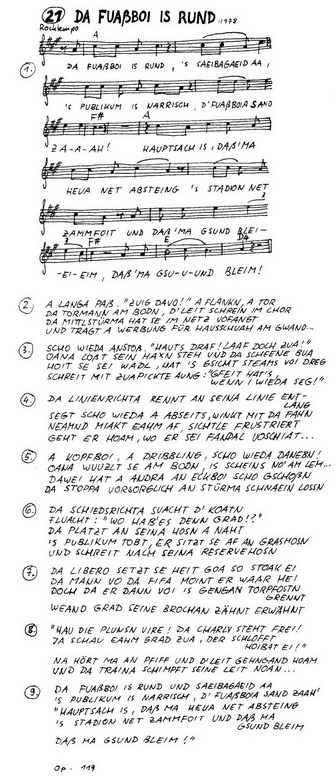 21 DA FUAßBOI IS RUND 1978
Rocktempo
A
1. DA FUAßBOI IS RUND, 'S SAEIBAGAEID AA,
'S PUBLIKUM IS NARRISCH, D'FUAßBOIA SAND
F# A
ZA-A-AH! HAUPTSACH IS, DAß'MA
HEUA NET ABSTEING 'S STADION NET
ZAMMFOIT UND DAß'MA GSUND BLEI-
F# E
-EI-EIM, DAß'MA GSU-U-UND BLEIM!
2. A LANGA PAß. "ZUIG DAVO!" A FLANKN, A TOR
DA TORMANN AM BODN, D'LEIT SCHREIN IM CHOR
DA MITTLSTÜRMA HAT SE IM NETZ VOFANGT
UND TRAGT A WERBUNG FÜR HAUSSCHUAH AM GWAND...
3. SCHO WIEDA ANSTOß. "HAUTS DRAF! LAAF DOCH ZUA!"
OANA LOßT SEIN HAXN STEH UND DA SCHEENE BUA
HOIT SE SEI WADL, HAT 'S GSICHT STEAMS VOI DREG
SCHREIT MIT ZUAPICKTE AUNG: "GFEIT HAT'S,
WENN I WIEDA SEG!"
4. DA LINIENRICHTA RENNT AN SEINA LINIE ENT-
LANG
SEGT SCHO WIEDA A ABSEITS, WINKT MIT DA FAHN
NEAMND MIAKT EAHM AF, SICHTLE FRUSTRIERT
GEHT ER HOAM, WO ER SEI FANDAL VOSCHIAT...
5. A KOPFBOI, A DRIBBLING, SCHO WIEDA DANEBN!
OANA WUUZLT SE AM BODN, IS SCHEINS NO' AM LEM...
DAWEI HAT A ANDRA AN ECKBOI SCHO GSCHOßN
DA STOPPA VOTSORGLICH AN STÜRMA SCHNAEIN LOSSN
6. DA SCHIEDSRICHTA SUACHT D'KOATN
FLUACHT: "WO HAB'ES DENN GRAD!?"
DA PLATZT AN SEINA HOSN A NAHT
IS PUBLIKUM TOBT, ER SITZT SE AF AN GRASMOSN
UND SCHREIT NACH SEINA RESERVEHOSN
7. DA LIBERO SETZT SE HEIT GOA SO STOAK EI
DA MANN VO DA FIFA MOINT ER WAAR HEI
DOCH DA ER DANN VOI IS GENGAN TORPFOSTN
GRENNT
WEAND GRAD SEINE BROCHAN ZÄHNT ERWÄHNT
8. "HAU DIE PLUNSN VIRE! DA CHARLY STEHT FREI!
JA SCHAU EAHM GRAD ZUA, DER SCHLOFFT
HOIBAT EI!"
NA HÖRT MA AN PFIFF UND D'LEIT GEHNGAND HOAM
UND DA TRAINA SCHIMPFT SEINE LEIT NOAN...
9. DA FUAßBOI IS RUND UND SAEIBAGAEID AA
'S PUBLIKUM IS NARRISCH, D'FUAßBOIA SAND ZAAH'
"HAUPTSACH IS, DAß MA HEUA NET ABSTEING
'S STADION NET ZAMMFOIT UND DAß MA
GSUND BLEIM
DAß MA GSUND BLEIM!"
Op. 119